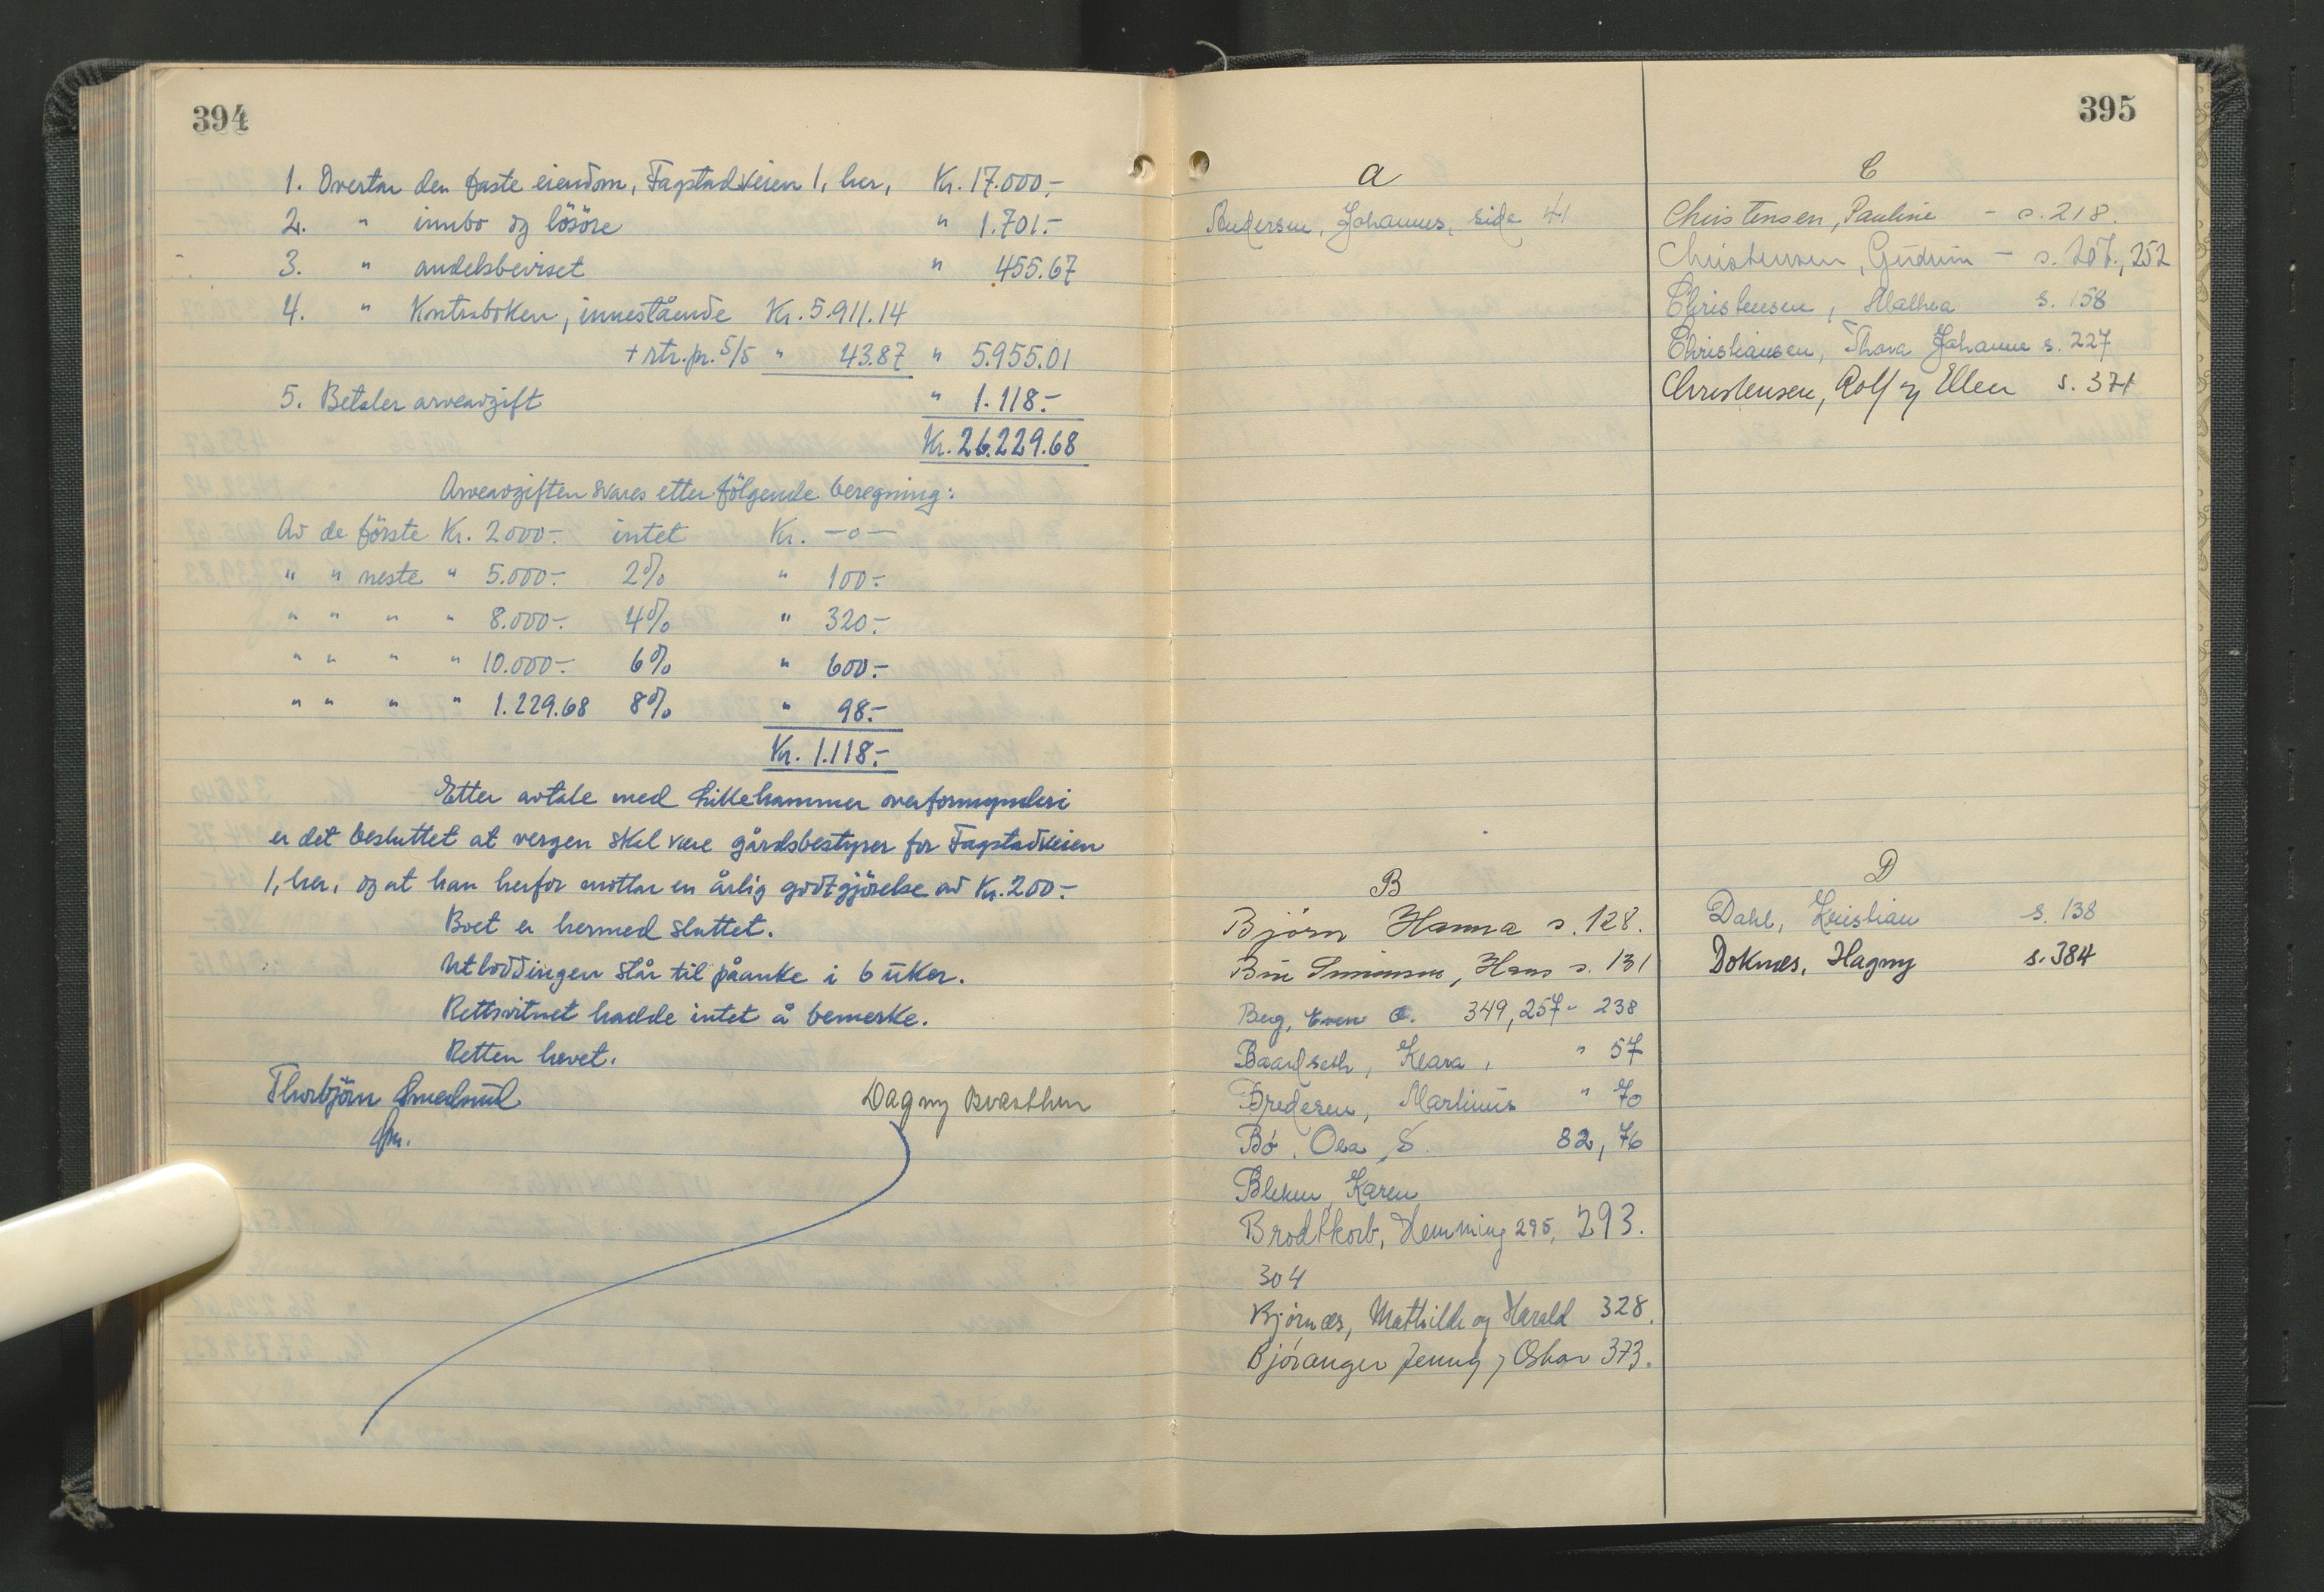 394
1. Overtar den faste eiendom, Fagstadveien 1, her, Kr. 17.000,-
2. " innbo og lösöre " 1.701.-
3. " andelsbeviset " 455.67
4. " Kontraboken, innestående Kr. 5.911.14
+ rtr. pr. 5/5 " 43.87 " 5.955.01
5. Betaler arveavgift " 1.118.-
Kr. 26.229.68
Arveavgiften svares etter fölgende beregning:
Av de förste Kr. 2000.- intet Kr. -o-
" " neste " 5.000.- 2% " 100.-
" " " " 8.000.- 4% " 320.-
" " " " 10.000.- 6% " 600.-
" " " " 1.229.68 8% " 98.-
Kr. 1.118.-
Etter avtale med Lillehammer overformynderi
er det besluttet at vergen skal være gårdsbestyrer for Fagstadveien
1, her, og at han herfor mottar en årlig godtgjörelse av Kr. 200.-
Boet er hermed sluttet.
Utloddingen står til påanke i 6 üker.
Rettsvitnet hadde intet å bemerke.
Retten hevet.
Thorbjörn
Dagny
395
a
Andersen, Johannes, side 41
B
Bjørn Hanna s. 128.
Simonsen, Hans s. 131
Berg, Even O. 349, 257 - 238
Baardseth, Klara, " 57
Bredesen, Martinus " 70
Bø, Ola S. 82, 76
Bleken, Karen
Brodtkorb, Hemming 295, 293.
304
Bjørnæs, Mathilde og Harald 328.
Bjøranger Jenny og Oskar 373.
C
Christensen, Pauline - s. 218.
Christensen, Gudrun - s. 207., 252
Christensen, Mathea s. 158
Christiansen, Thora Johanne s. 227
Christensen, Rolf og Ellen s. 371
D
Dahl, Kristian s. 138
Doknes, Hagny s. 384